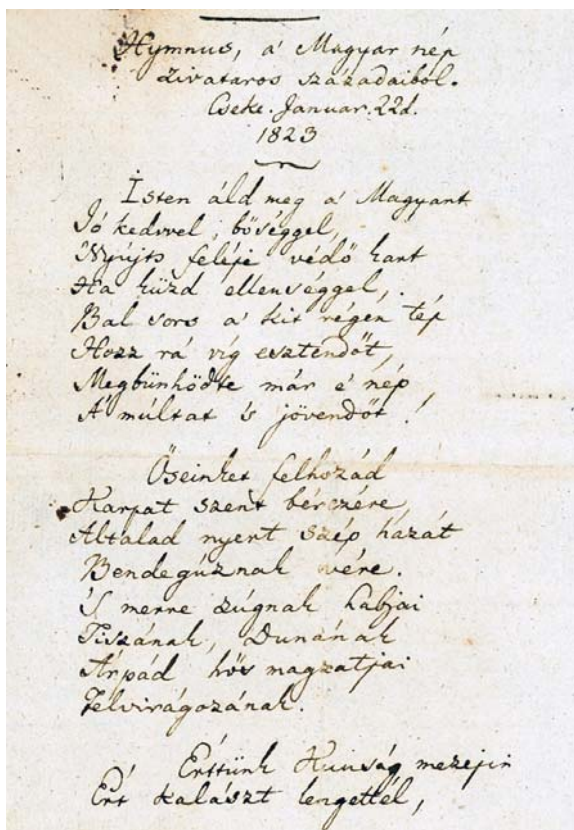 Hymnus, a' Magyar nép
zivataros századaiból.
Cseke. Januar. 22d.
1823
Isten áld meg a' Magyart
Jó kedvvel, bőséggel,
Nyújts feléje védő kart
Ha küzd ellenséggel,
Bal sors a' kit régen tép
Hozz rá víg esztendőt,
Megbűnhödte már e' nép
A' múltat 's jövendőt!
Őseinket felhozád
Karpat szent bérczére,
Általad nyert szép hazát
Bendegúznak vére.
'S merre zúgnak habjai
Tiszának, Dunának
Árpád hős magzatjai
Felvirágozának.
Érttünk Kunság mezején
Ért kalászt lengettél,